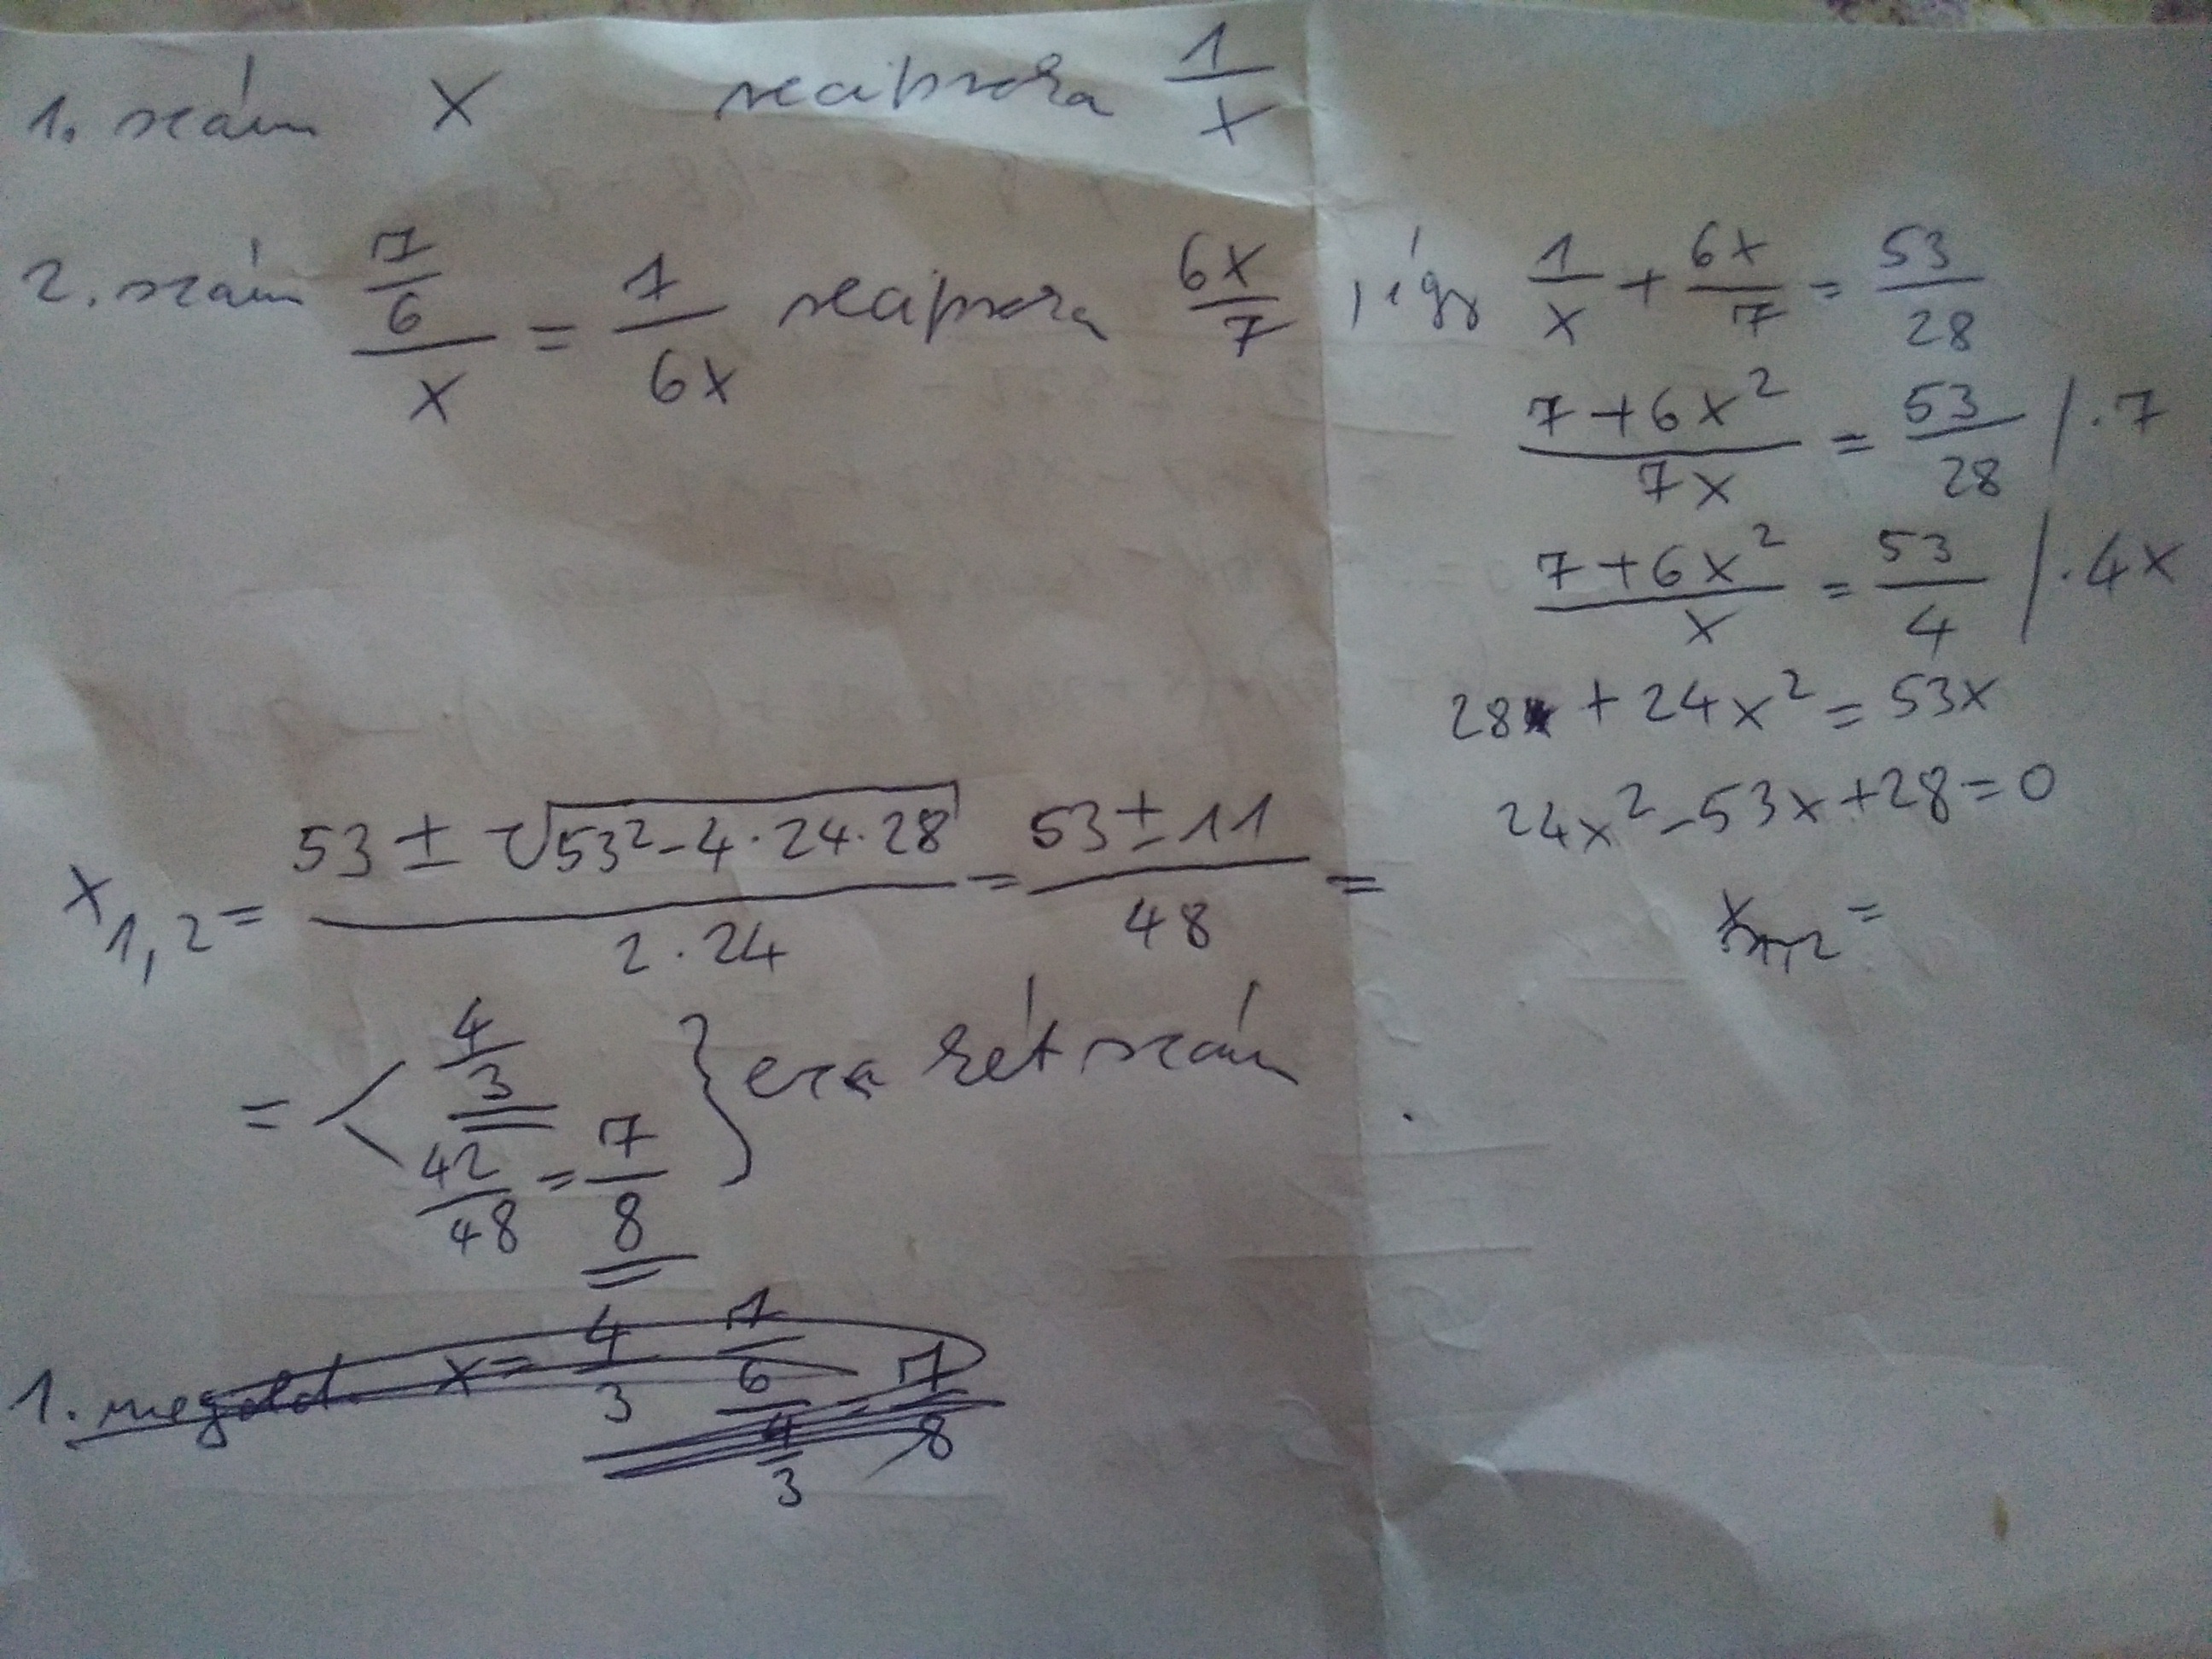 1. szám x reciproka 1/x
2. szám (7/6)/x = 7/6x reciproka 6x/7, így 1/x + 6x/7 = 53/28
(7+6x²)/7x = 53/28 /·7
(7+6x²)/x = 53/4 /·4x
28 + 24x² = 53x
24x² - 53x + 28 = 0
x₁,₂ =
x₁,₂ = (53 ± √(53² - 4·24·28))/(2·24) = (53 ± 11)/48 =
= < 4/3
42/48 = 7/8 } ez a két szám
1. megold. x = 4/3 (7/6)/(4/3) = 7/8